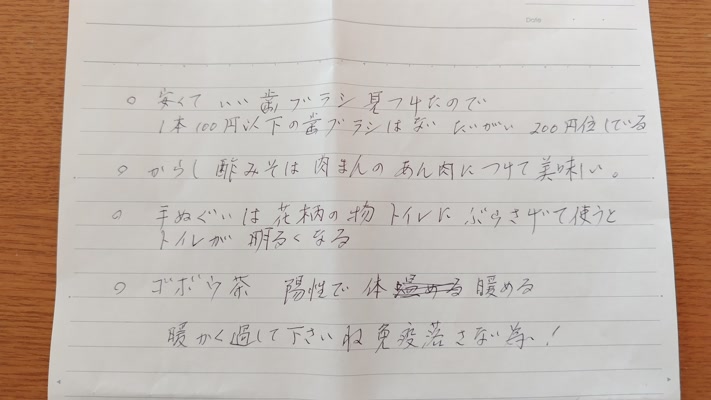 Date
○ 安くて いい 歯ブラシ 見つけたので
1本100円以下の歯ブラシはない たいがい 200円位している
○ からし酢みそは 肉まんの あん肉につけて 美味しい。
○ 手ぬぐいは 花柄の物 トイレに ぶらさげて使うと
トイレが 明るくなる
○ ゴボウ茶 陽性で 体 暖める
暖かく過して下さいね 免疫落さない為!